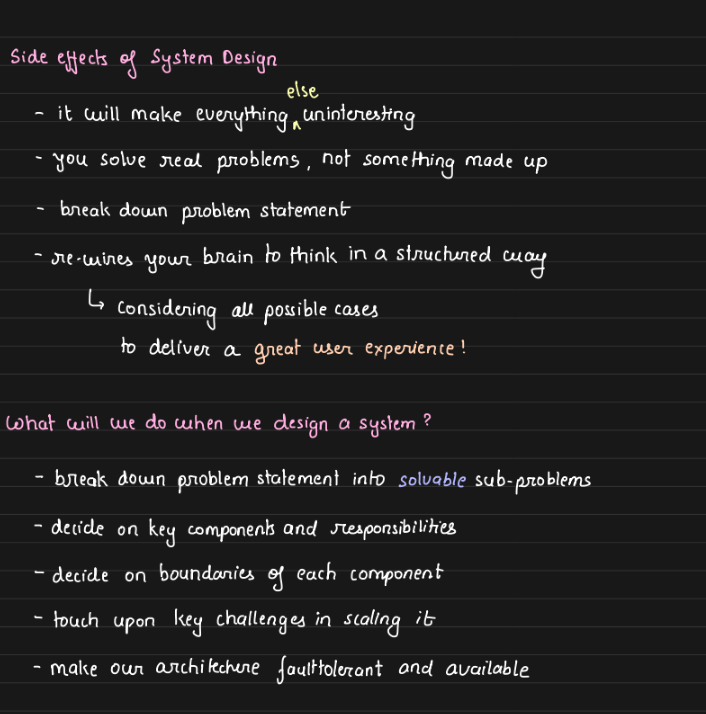 Side effects of System Design
- it will make everything else uninteresting
- you solve real problems, not something made up
- break down problem statement
- re-wires your brain to think in a structured way
↳ Considering all possible cases
to deliver a great user experience!
What will we do when we design a system?
- break down problem statement into solvable sub-problems
- decide on key components and responsibilities
- decide on boundaries of each component
- touch upon key challenges in scaling it
- make our architecture fault tolerant and available